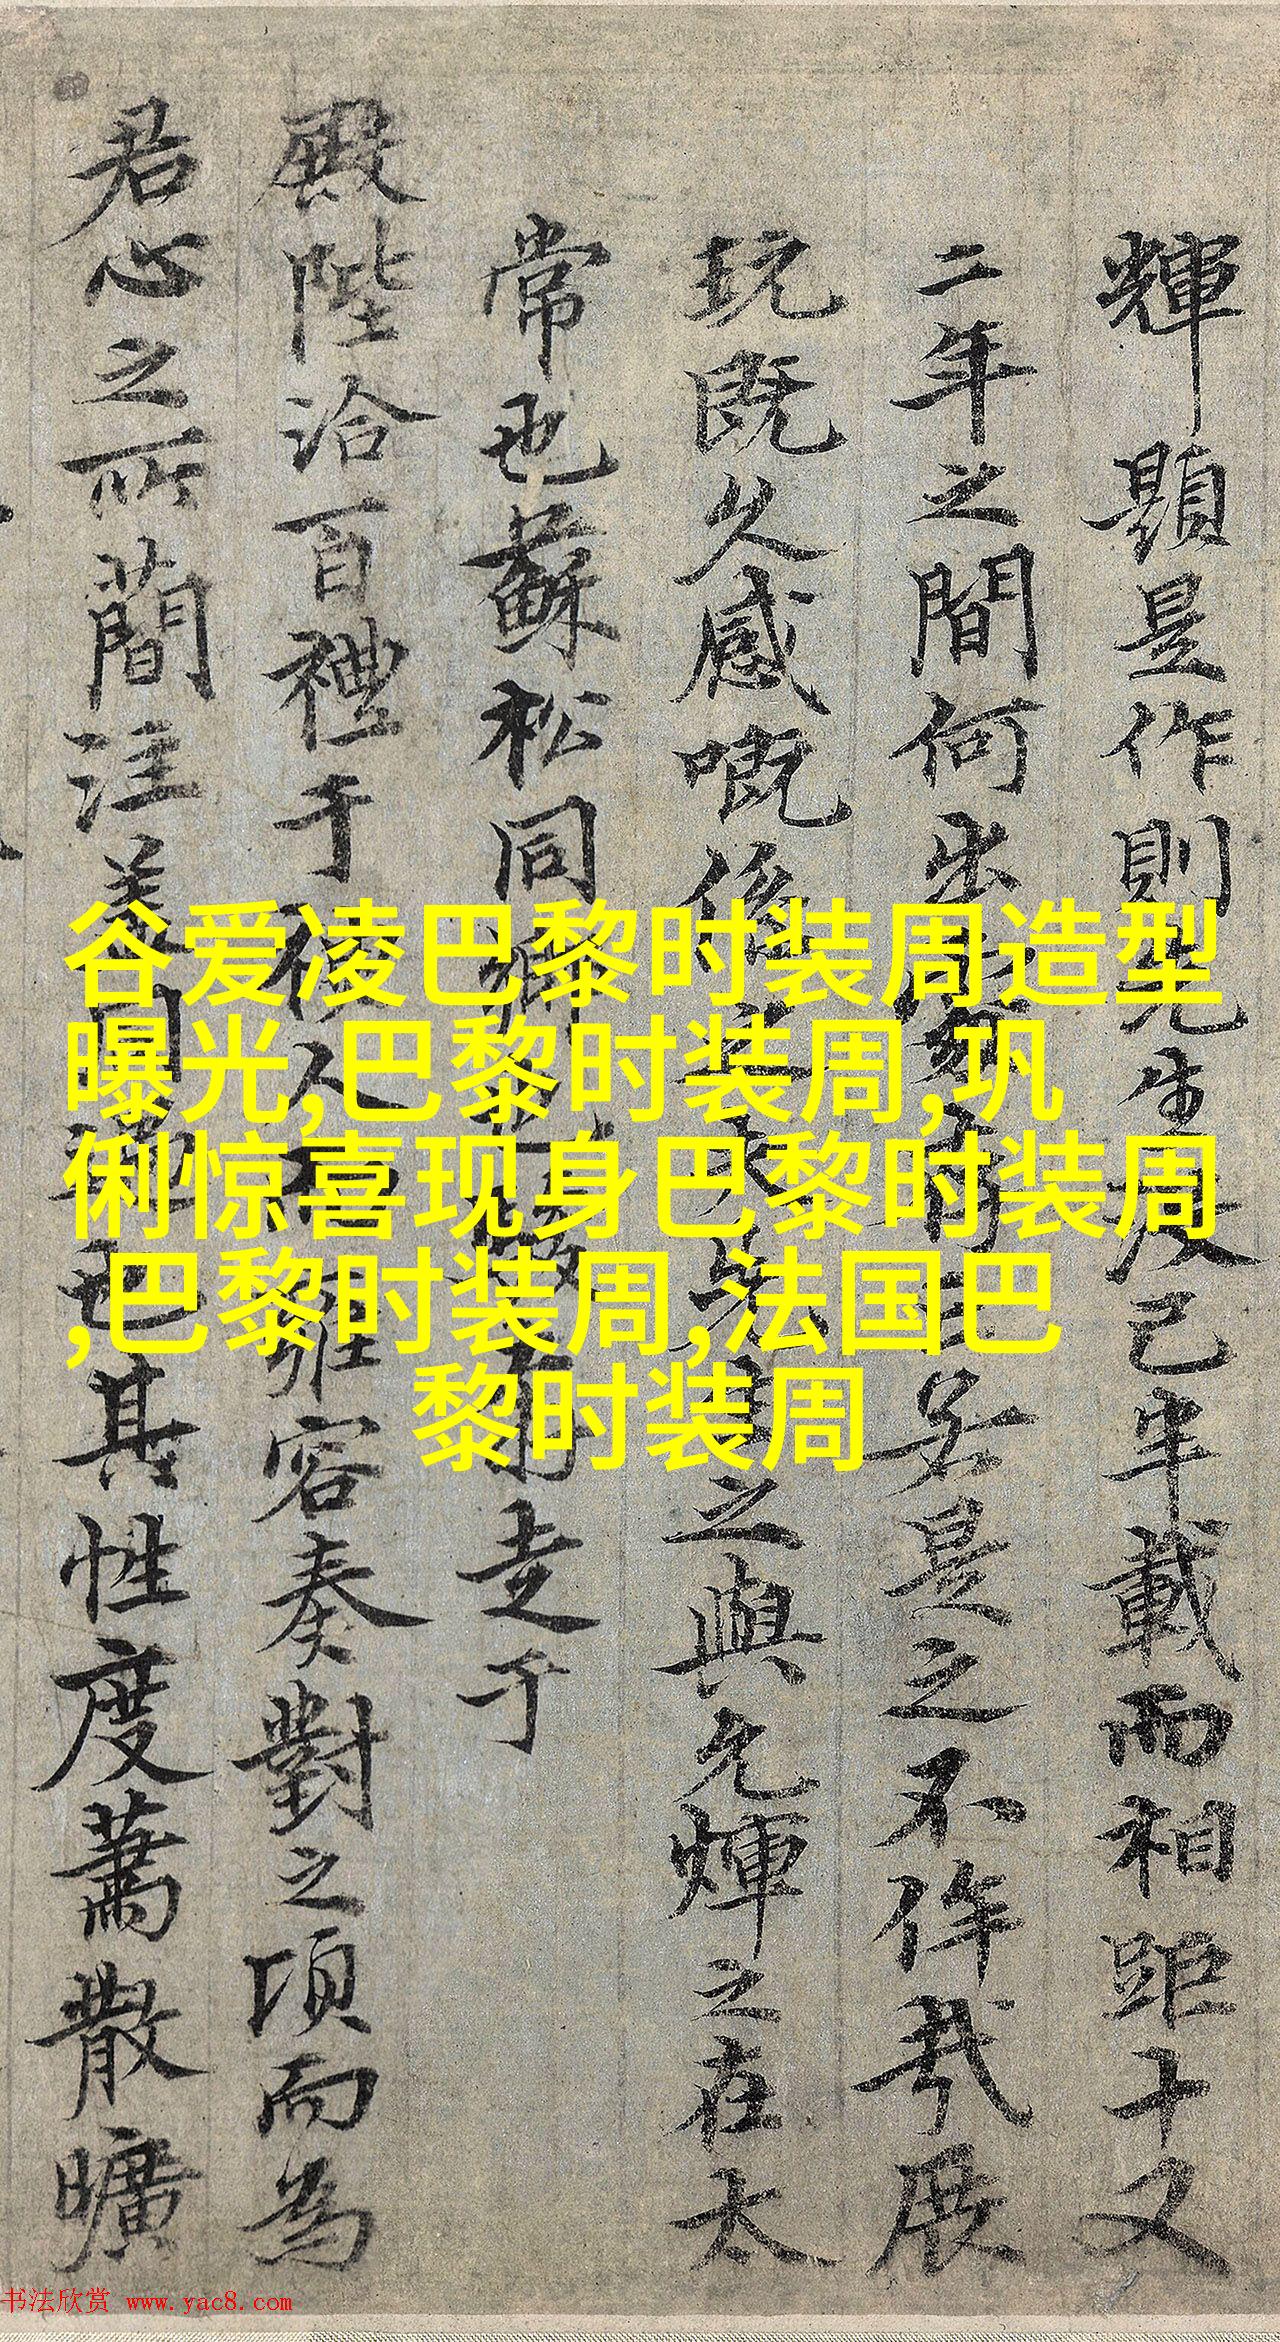 輝題是作則先生已半載而相距十又
二年之間何出是之不侔哉展
玩既久感嘅先之與允煇之在太
常也蘇松同鄉走于
殿陛洽百禮于雍容奏對之頃而為
君心之所簡注也其性度蕭散曠
谷爱凌巴黎时装周造型
曝光,巴黎时装周,巩
俐惊喜现身巴黎时装周
,巴黎时装周,法国巴
黎时装周
书法欣赏 www.yac8.com